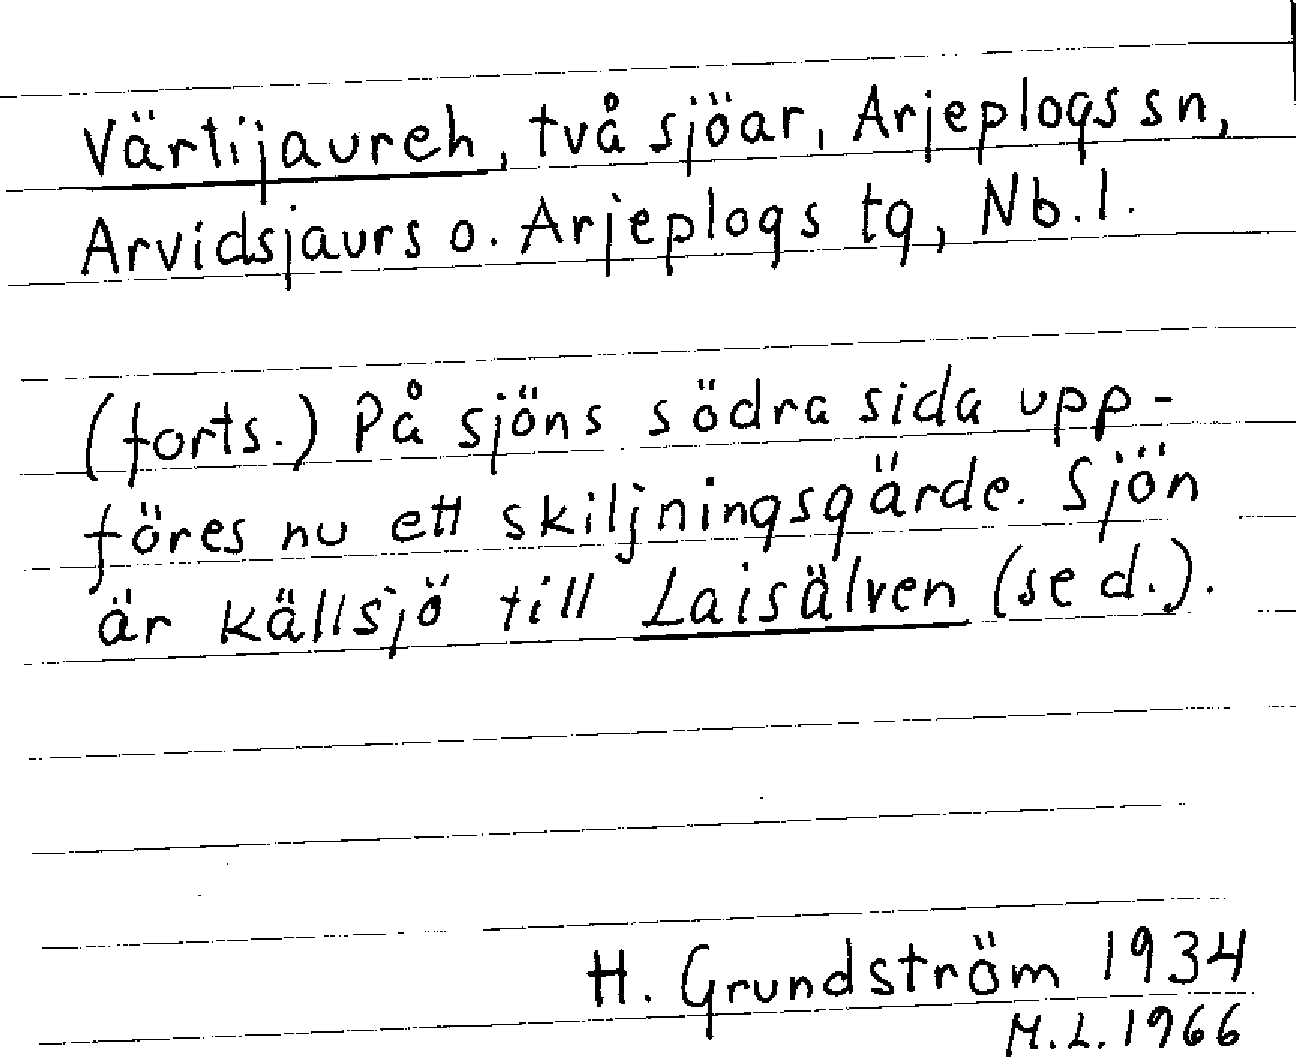 Värtijaureh, två sjöar, Arjeplogs sn,
Arvidsjaurs o. Arjeplogs tg, Nb.l.
(forts.) På sjöns södra sida upp-
föres nu ett skiljningsgärde. Sjön
är källsjö till Laisälven (se d.).
H. Grundström 1934
M.L. 1966